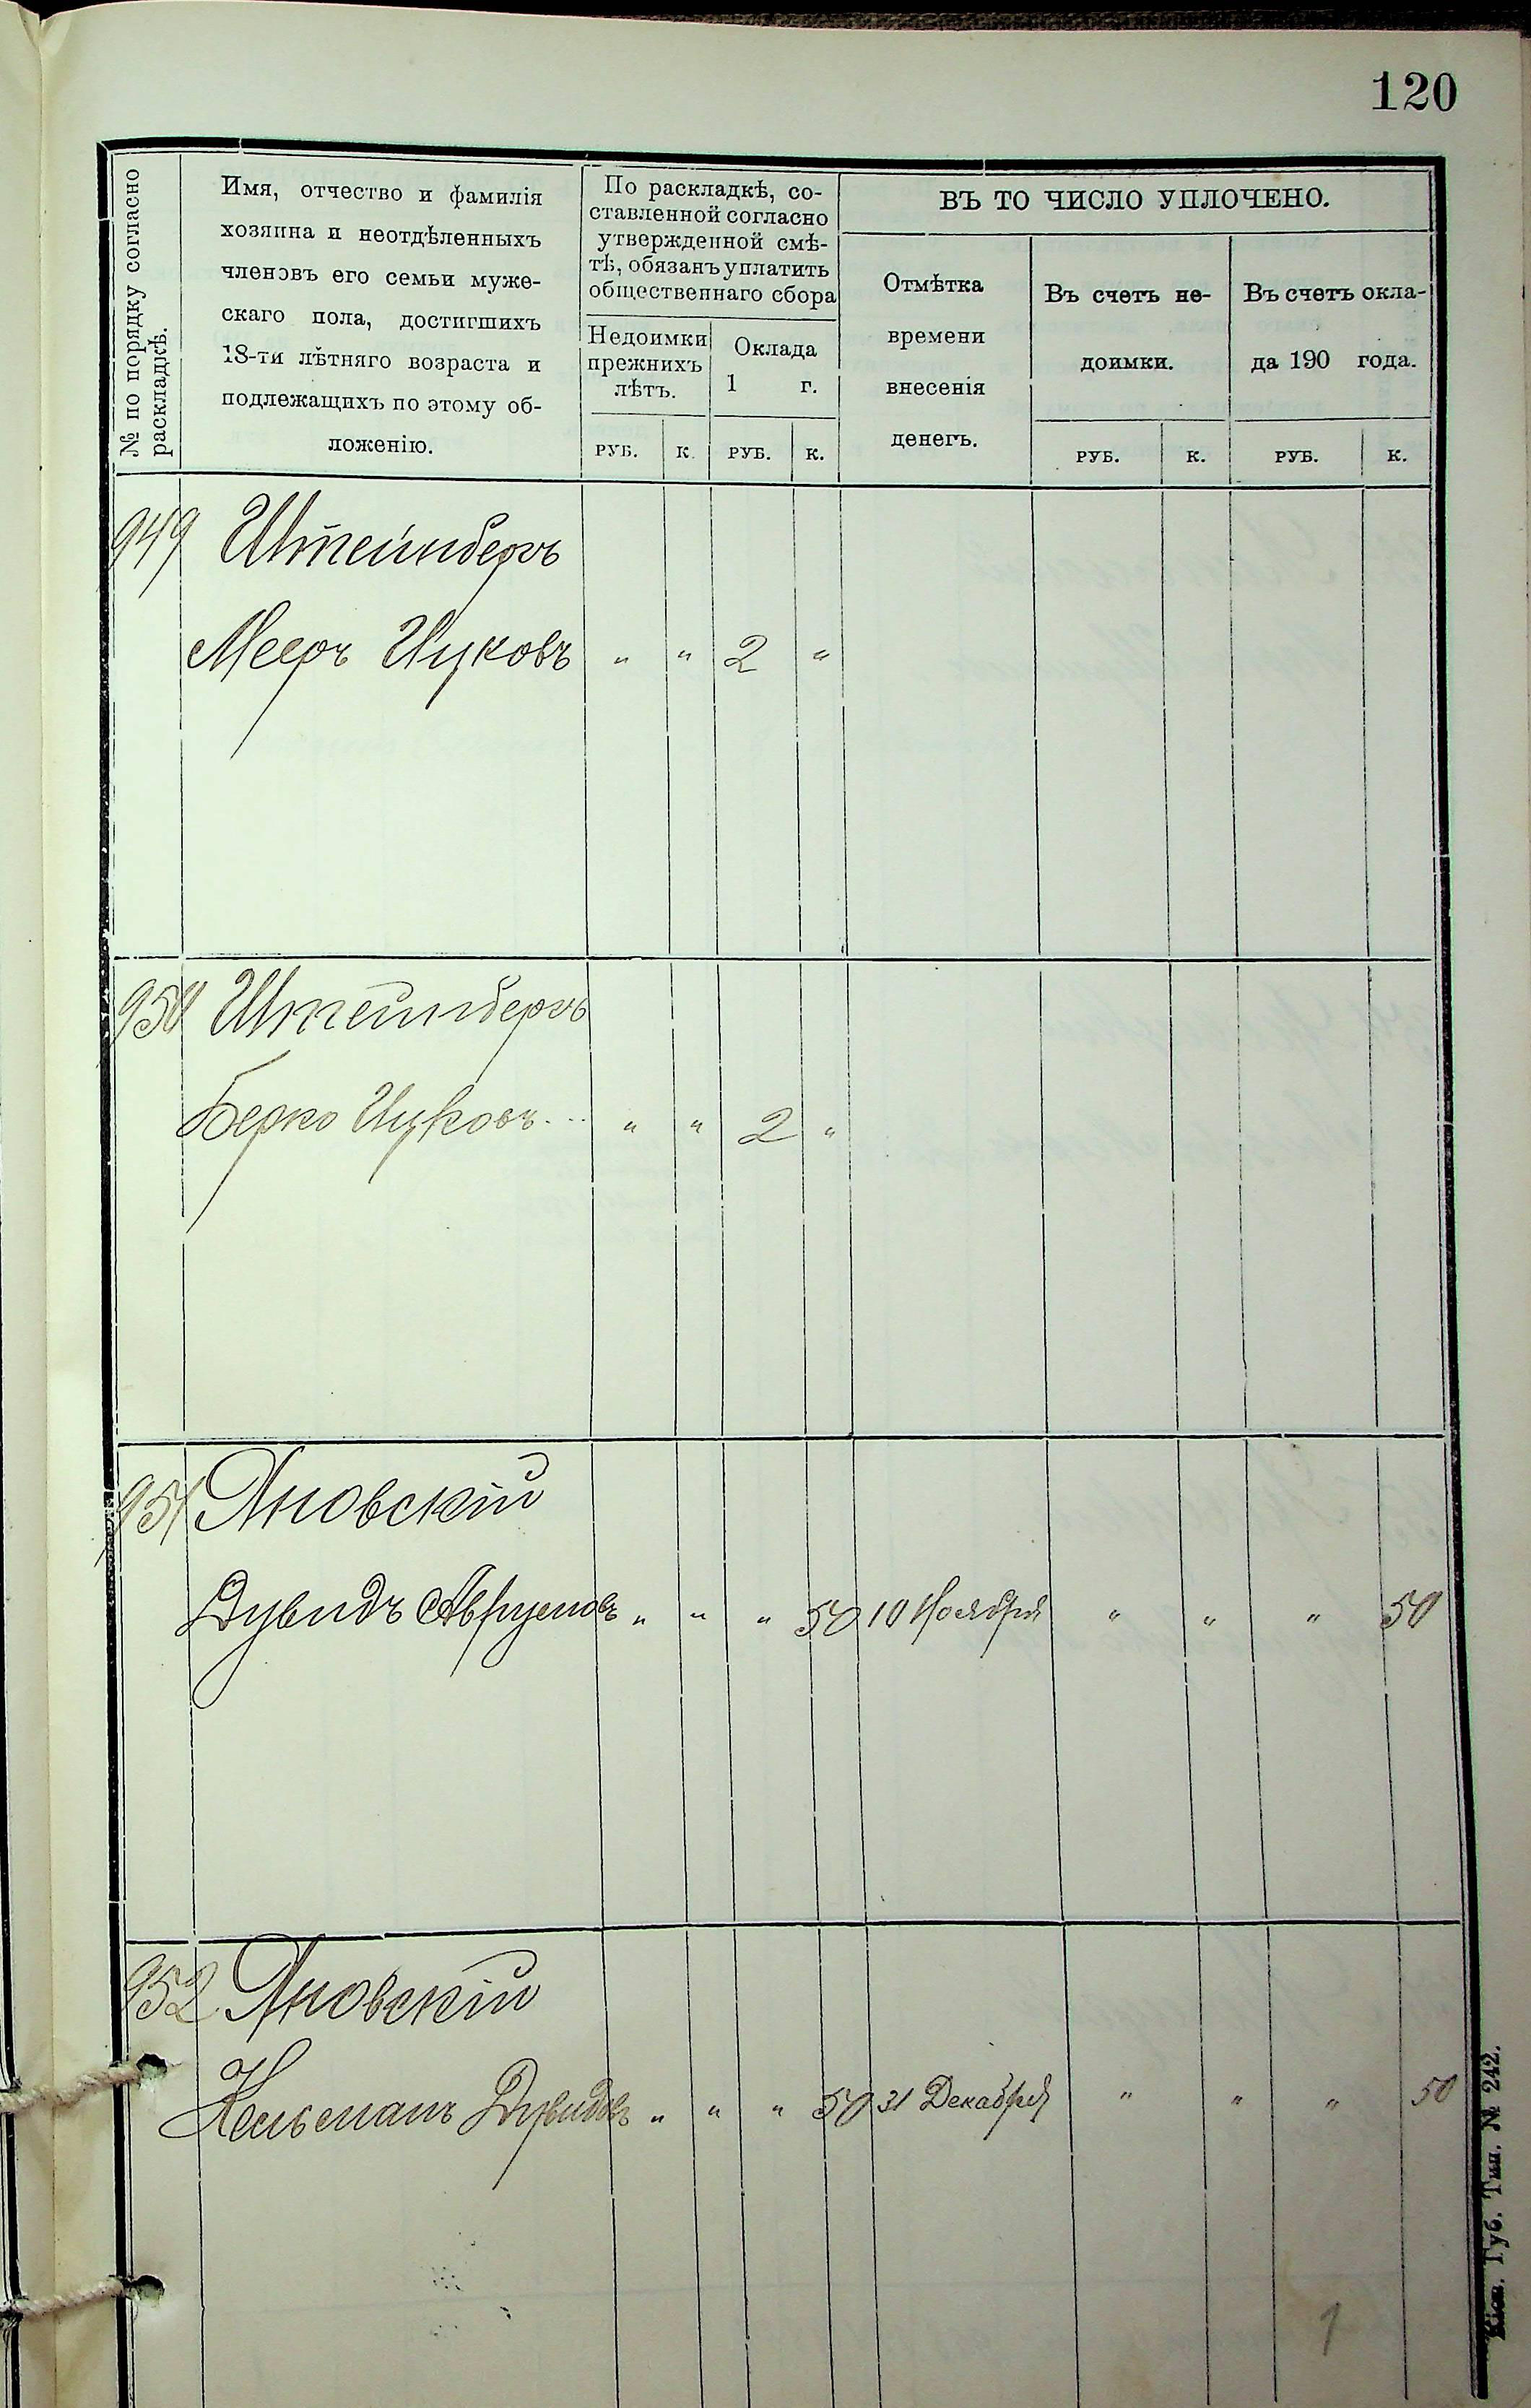 120
№ по порядку согласно
раскладкѣ.
Имя, отчество и фамилія
хозяина и неотдѣленныхъ
членовъ его семьи муже-
скаго пола, достигшихъ
18-ти лѣтняго возраста и
подлежащихъ по этому об-
ложенію.
По раскладкѣ, со-
ставленной согласно
утвержденной смѣ-
тѣ, обязанъ уплатить
общественнаго сбора
Недоимки
прежнихъ
лѣтъ.
Оклада
1 г.
ВЪ ТО ЧИСЛО УПЛОЧЕНО.
Отмѣтка
времени
внесенія
денегъ.
Въ счетъ не-
доимки.
Въ счетъ окла-
да 190 года.
РУБ. К. РУБ. К. РУБ. К. РУБ. К.
949 Штейнбергъ
Мееръ Ицковъ „ „ 2 „
950 Штейнбергъ
Берко Ицковъ „ „ 2 „
951 Яновскій
Дувидъ Аврумовъ „ „ „ 50 10 Ноября „ „ „ 50
952 Яновскій
Кельманъ Дувидовъ „ „ „ 50 31 Декабря „ „ „ 50
1
Кіев. Губ. Тип. № 242.